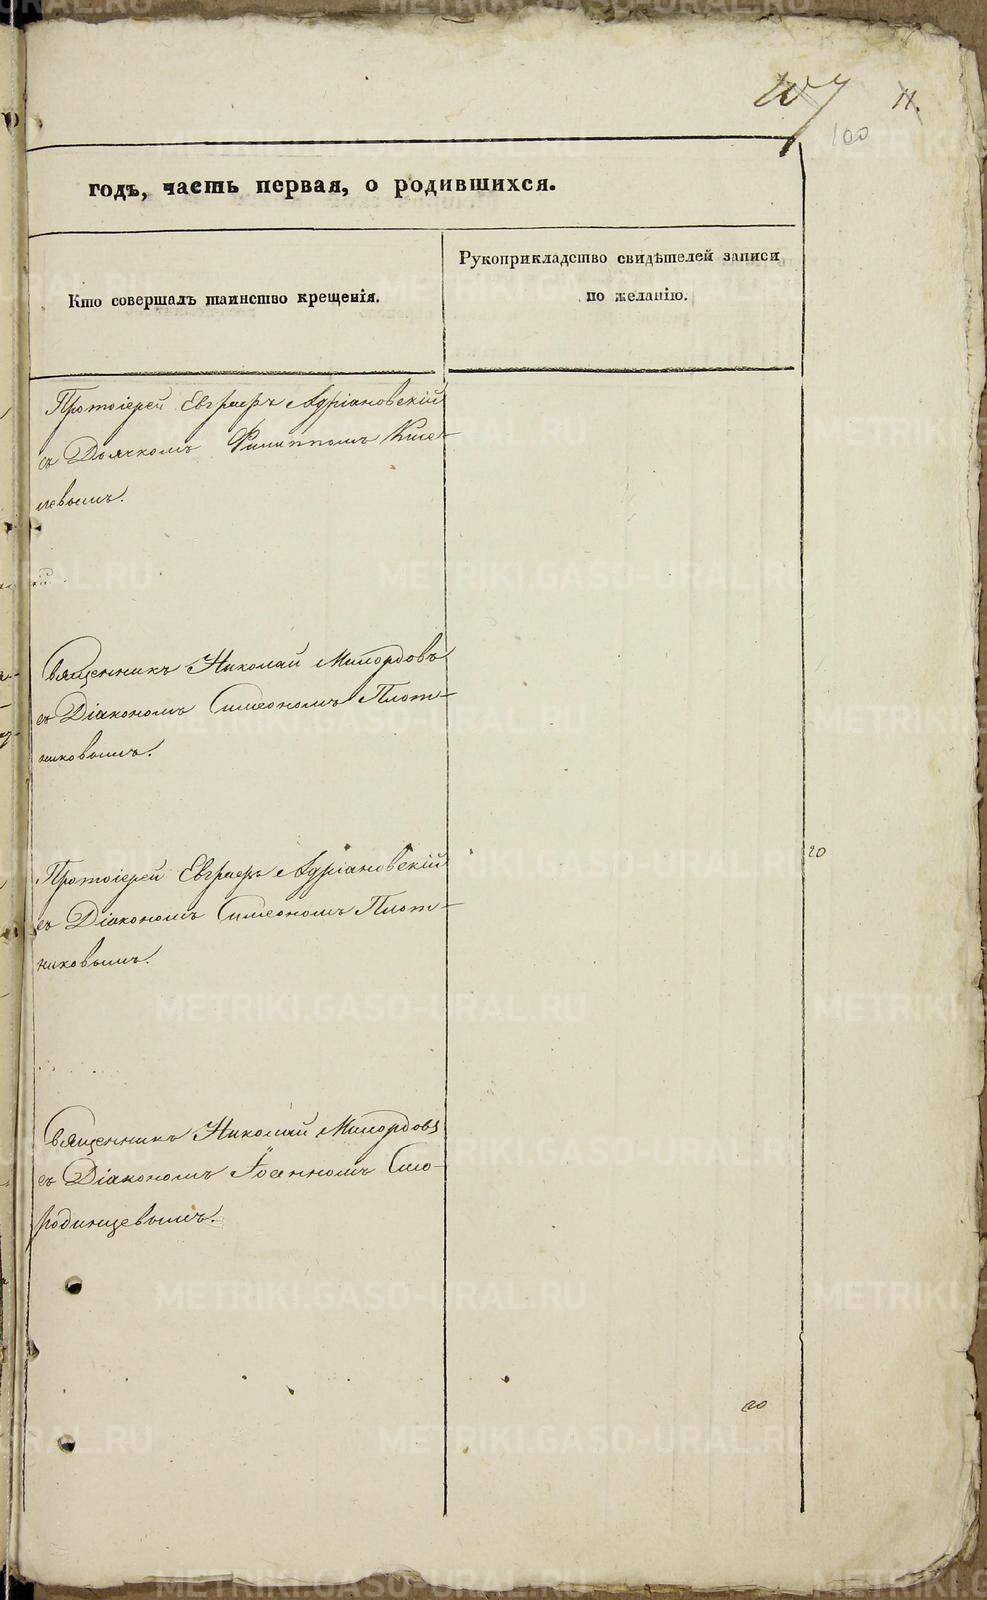 107 11.
100
годъ, часть первая, о родившихся.
Кто совершалъ таинство крещенія.
Рукоприкладство свидѣтелей записи
по желанію.
Протоіерей Евграфъ Адріановскій
съ Дьячкомъ Филиппомъ Кисе-
левымъ.
Священникъ Николай Милордовъ
съ Діакономъ Симеономъ Плот-
никовымъ.
Протоіерей Евграфъ Адріановскій
съ Діакономъ Симеономъ Плот-
никовымъ.
20
Священникъ Николай Милордовъ
съ Діакономъ Іоанномъ Смо-
родинцевымъ.
20
METRIKI.GASO-URAL.RU